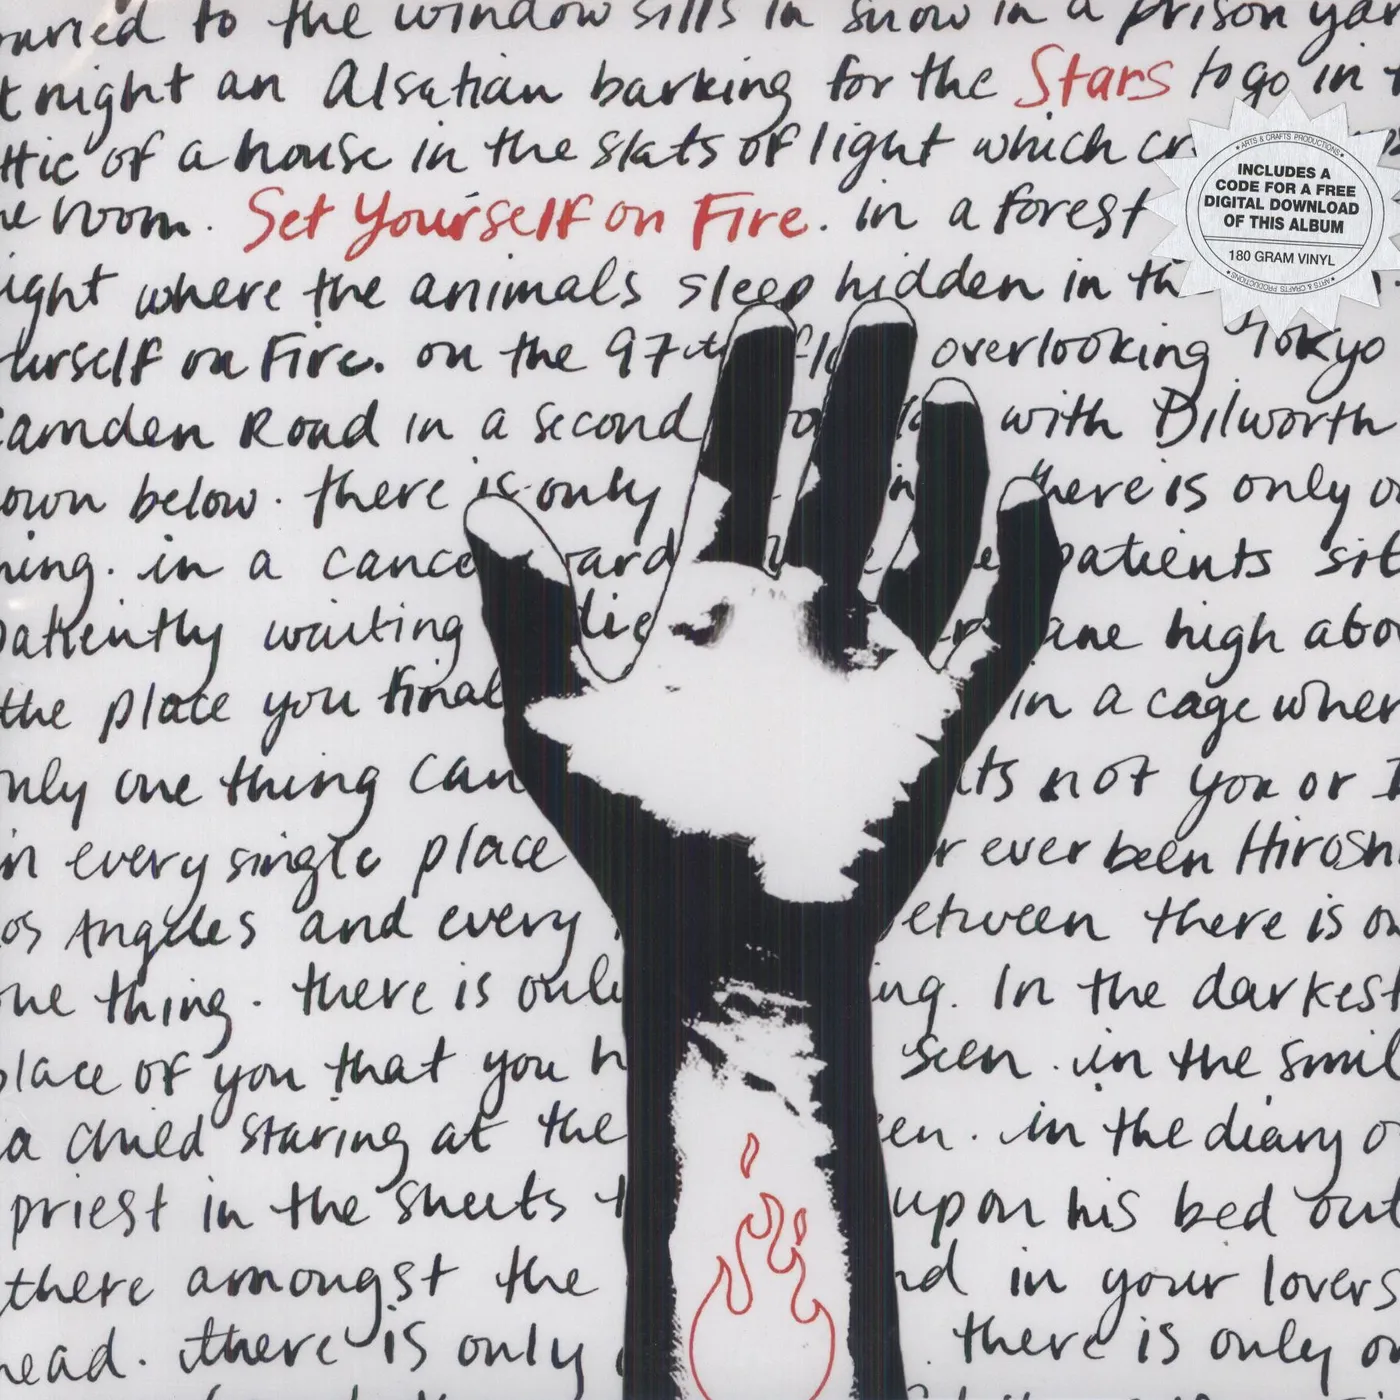 buried to the window sills in snow in a prison yar
t night an Alsatian barking for the Stars to go in t
ttic of a house in the slats of light which cr
he room. Set Yourself on Fire. in a forest
ight where the animals sleep hidden in th
ourself on Fire. on the 97th fl overlooking Tokyo
Camden Road in a second with Dilworth
own below. there is only there is only o
hing. in a cance ward patients sit
patiently waiting die ane high abo
the place you final in a cage wher
only one thing can its not you or I
in every single place r ever been Hiroshi
os Angeles and every between there is on
one thing. there is only ing. In the darkest
place of you that you h seen. in the smil
a child staring at the en. in the diary o
priest in the sheets t upon his bed out
there amongst the nd in your lovers
head. there is only . there is only on
ARTS & CRAFTS PRODUCTIONS
INCLUDES A
CODE FOR A FREE
DIGITAL DOWNLOAD
OF THIS ALBUM
180 GRAM VINYL
ARTS & CRAFTS PRODUCTIONS